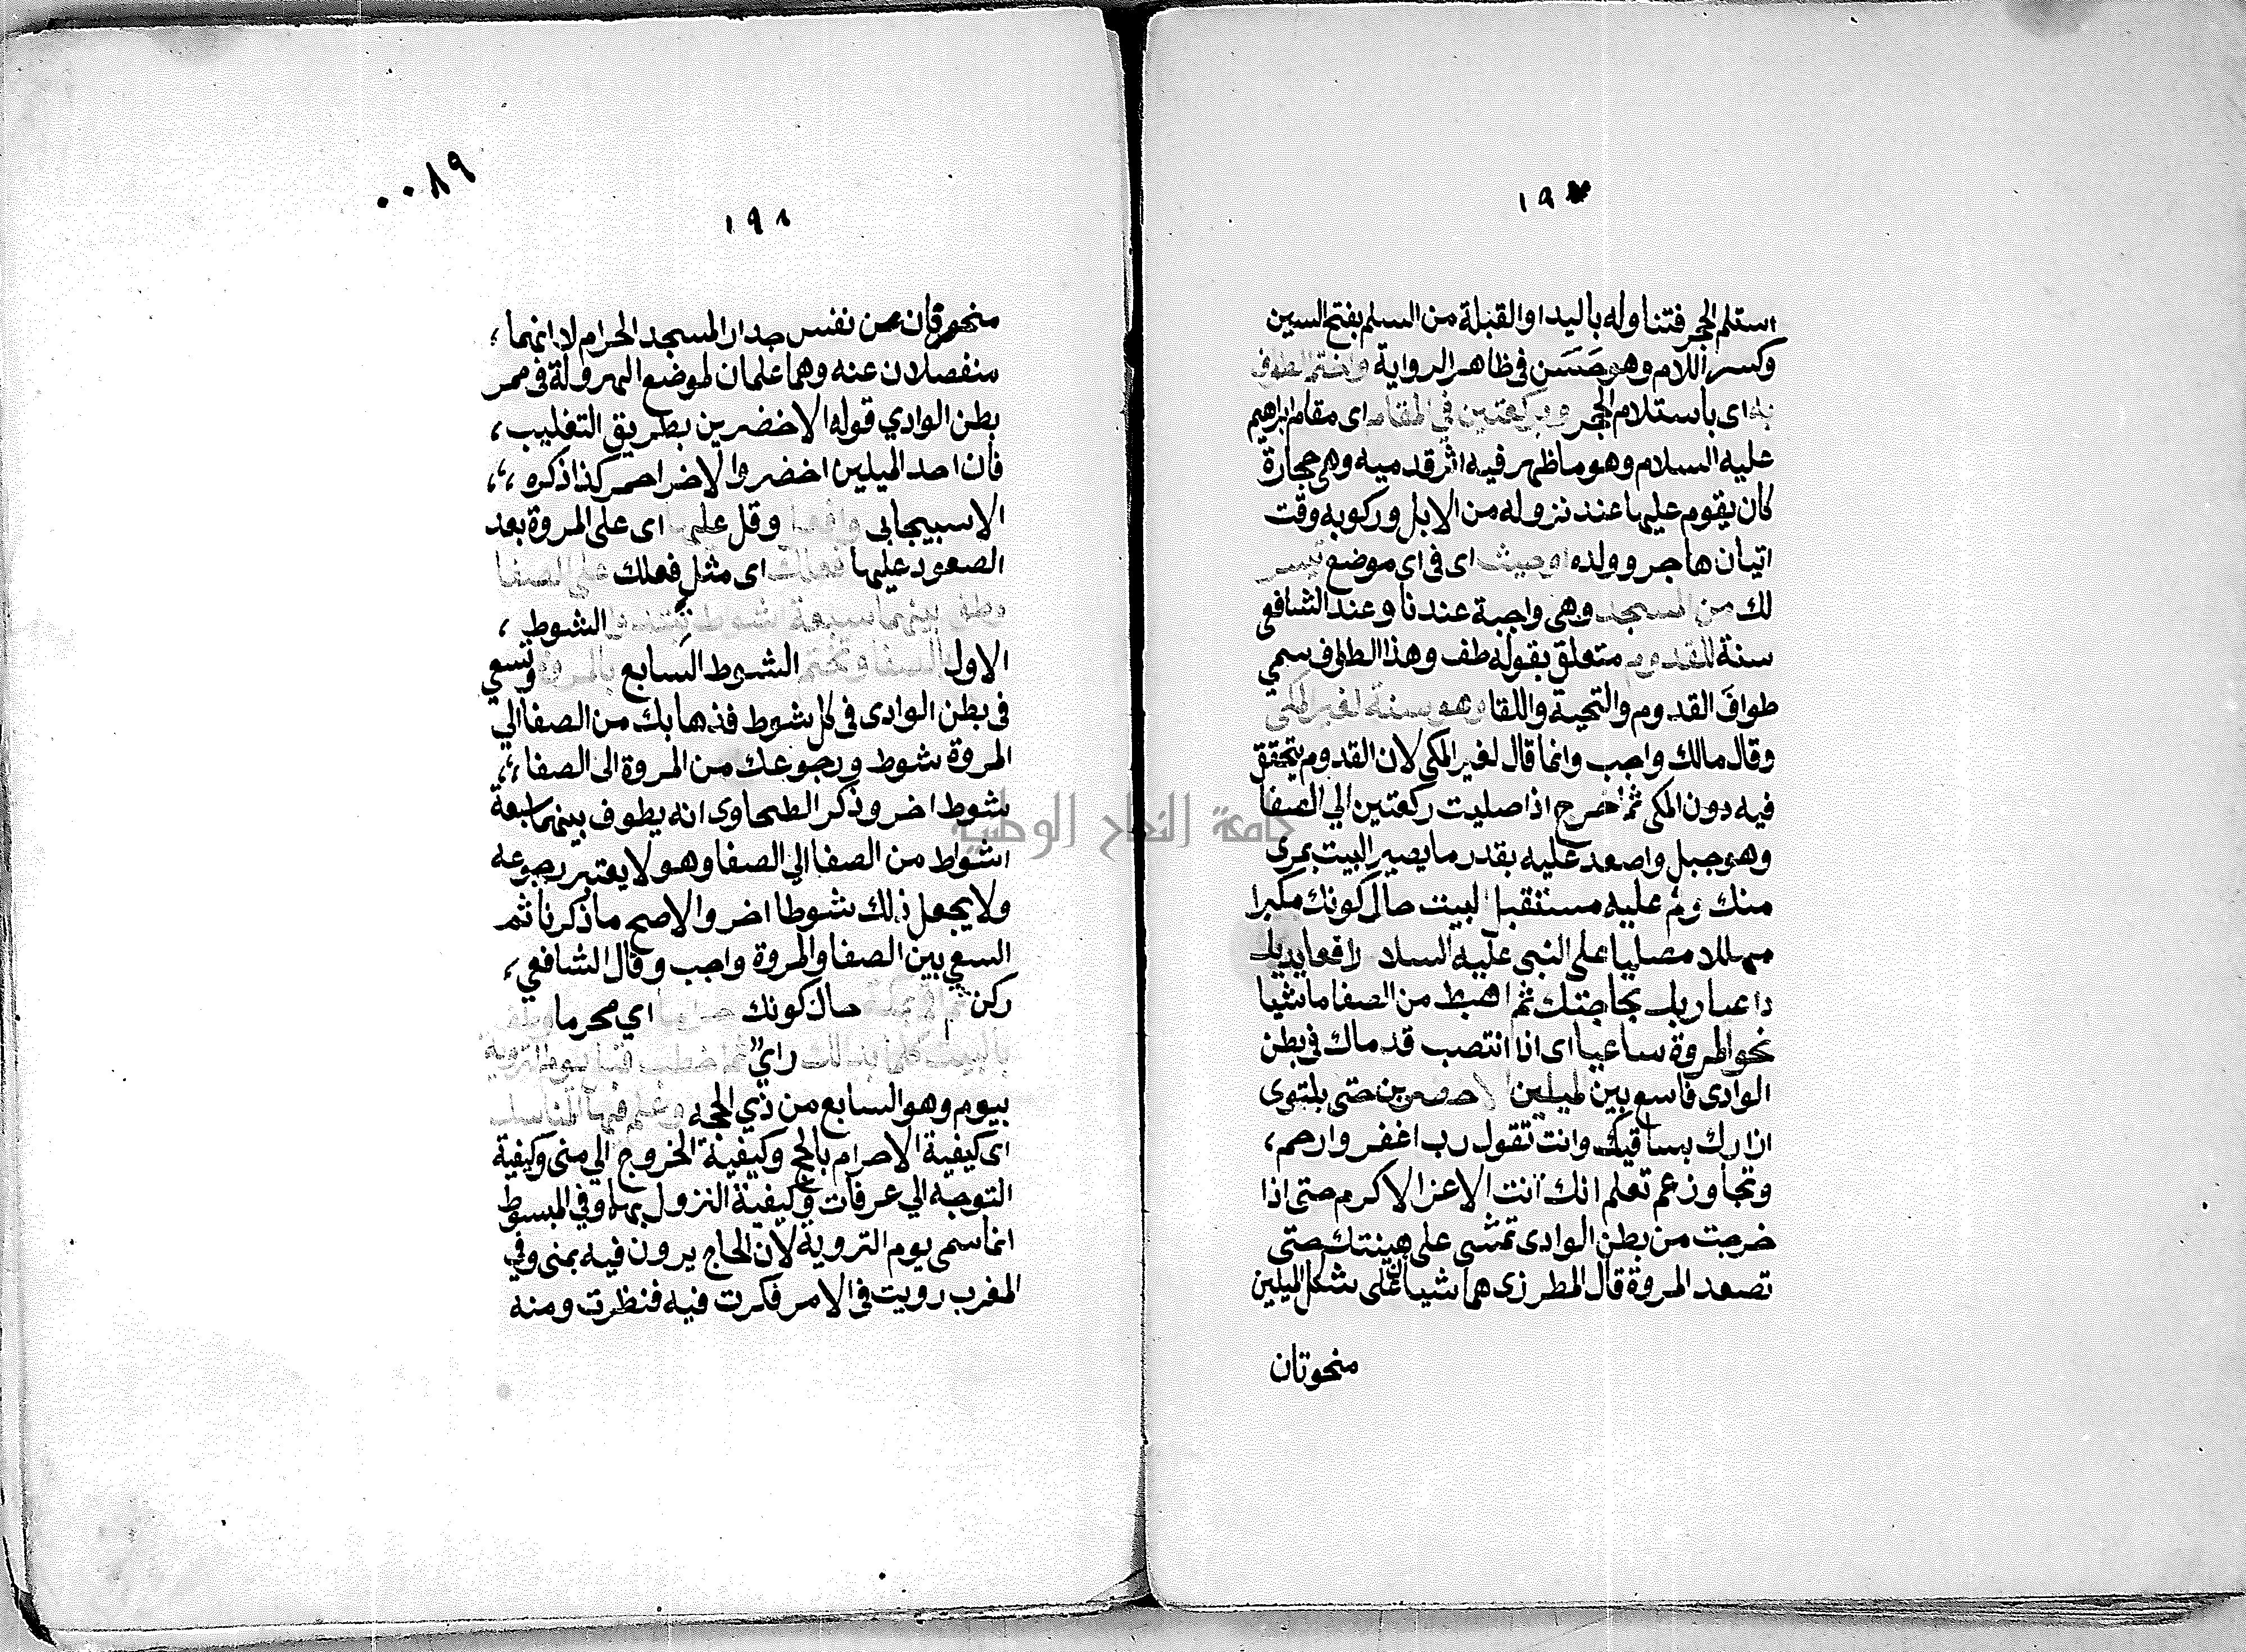 استلم الحجر فتناوله باليد او القبلة من السلم بفتح السين
وكسر اللام وهو حَسَن في ظاهر الرواية واختم الطواف
به اى باستلام الحجر وبركعتين في المقام اى مقام ابراهيم
عليه السلام وهو ما ظهر فيه اثر قدميه وهى حجارة
كان يقوم عليها عند نزوله من الابل وركوبه وقت
اتيان هاجر وولده او حيث اى فى اى موضع تيسر
لك من المسجد وهى واجبة عندنا وعند الشافعى
سنة للقدوم متعلق بقوله طف وهذا الطواف سمي
طوافَ القدوم والتحية واللقا وهو سنة لغير المكى
وقال مالك واجب وانما قال لغير المكى لان القدوم يتحقق
فيه دون المكى ثم اخرج اذا صليت ركعتين الي الصفا
وهو جبل واصعد عليه بقدر ما يصير البيت بمرى
منك وقم عليه مستقبل البيت حال كونك مكبرا
مهللا مصليا على النبى عليه السلام رافعا يديك
داعيا ربك بحاجتك ثم اهبط من الصفا ماشيا
نحو المروة ساعيا اى اذا انتصب قدماك فى بطن
الوادى فاسع بين الميلين الاخضرين حتى يلتوى
ازارك بساقيك وانت تقول رب اغفر وارحم،
وتجاوز عم تعلم انك انت الاعز الاكرم حتى اذا
خرجت من بطن الوادى تمشى على هينتك حتى
تصعد المروة قال المطرزى هما شيان على شكل الميلين
منحوتان
١٩٨
٠٠٨٩
منحوتان من نفس جدار المسجد الحرام لا انهما،
منفصلان عنه وهما علمان لموضع الهرولة فى ممر
بطن الوادي قوله الاخضرين بطريق التغليب،
فان احد الميلين اخضر والاخر احمر كذا ذكره،
الاسبيجابى وافعل وقل عليها اى على المروة بعد
الصعود عليها فعلك اى مثل فعلك على الصفا
وطف بينهما سبعة اشواط تبتدئ الشوط،
الاول بالصفا وتختم الشوط السابع بالمروة وتسعي
فى بطن الوادى فى كل شوط فذهابك من الصفا الي
المروة شوط ورجوعك من المروة الى الصفا،
شوط اخر وذكر الطحاوى انه يطوف بينهما سبعة
اشواط من الصفا الي الصفا وهو لا يعتبر رجوعه
ولا يجعل ذلك شوطا اخر والاصح ما ذكرنا ثم
السعي بين الصفا والمروة واجب وقال الشافعي،
ركن ثم اقم بمكة حال كونك حراما اي محرما وطف
بالبيت كلما بدا لك راي ثم اخطب قبل يوم التروية
بيوم وهو السابع من ذي الحجه وعلم فيها المناسك
اى كيفية الاحرام بالحج وكيفية الخروج الي منى وكيفية
التوجه الي عرفات وكيفية النزول بها وفي المبسوط
انما سمى يوم التروية لان الحاج يروون فيه بمنى وفي
المغرب رويت فى الامر فكرت فيه فنظرت ومنه
جامعة النجاح الوطنية